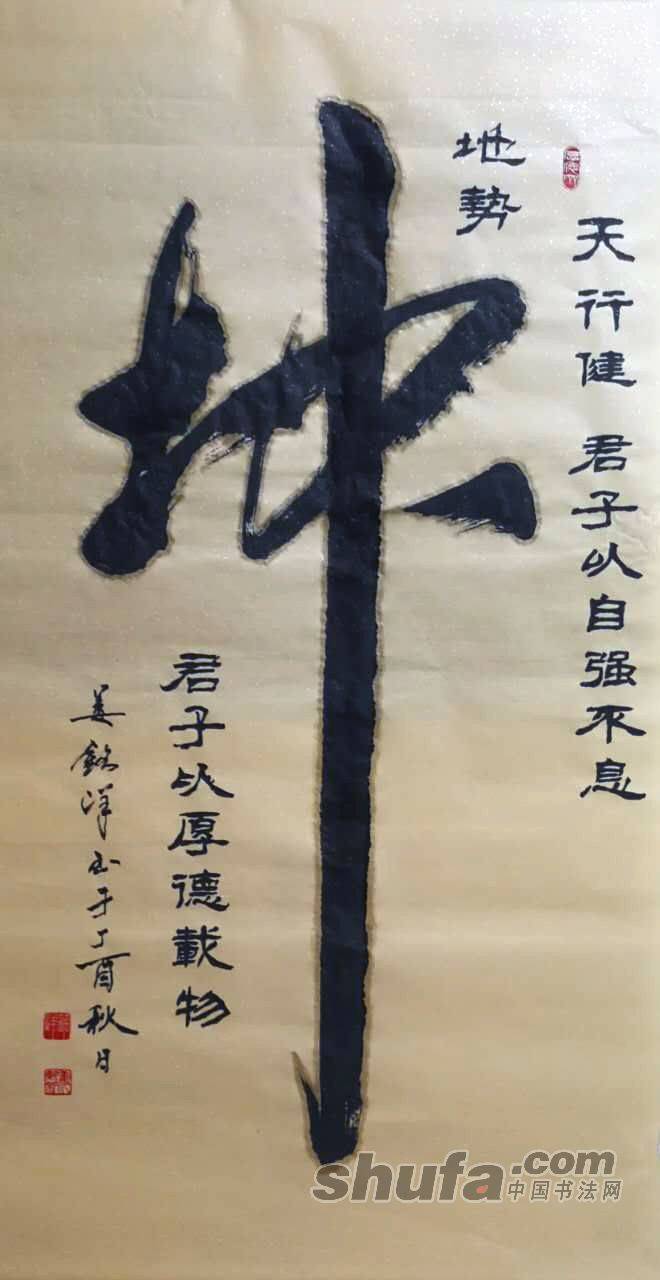 天行健 君子以自强不息
地势
坤
君子以厚德載物
姜銘洋书于丁酉秋日
shufa.com
中国书法网